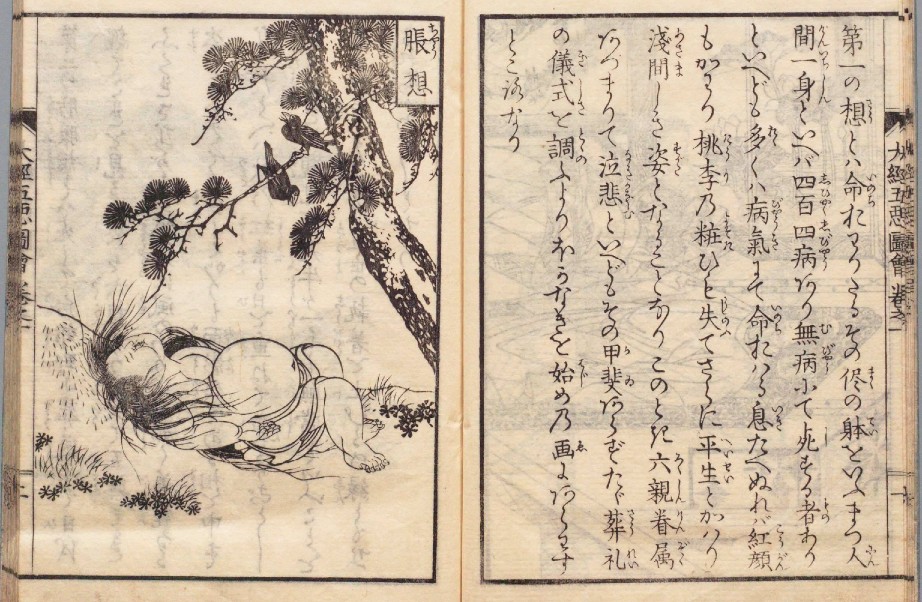 第一の想とハ命おわりたるその侭の躰をいふまづ人
間一身といへバ四百四病あり無病にて死する者あり
といへども多くハ病氣にて命おはる息たへぬれバ紅顔
もかはり桃李乃粧ひも失てさらに平生とかはり
浅間しき姿となることなりこのとき六親眷属
あつまりて泣悲といへどもその甲斐あらずたゞ葬礼
の儀式を調ふよりほかなきを始め乃画にあらはす
ところなり
脹想
大經五惡圖會 卷之一